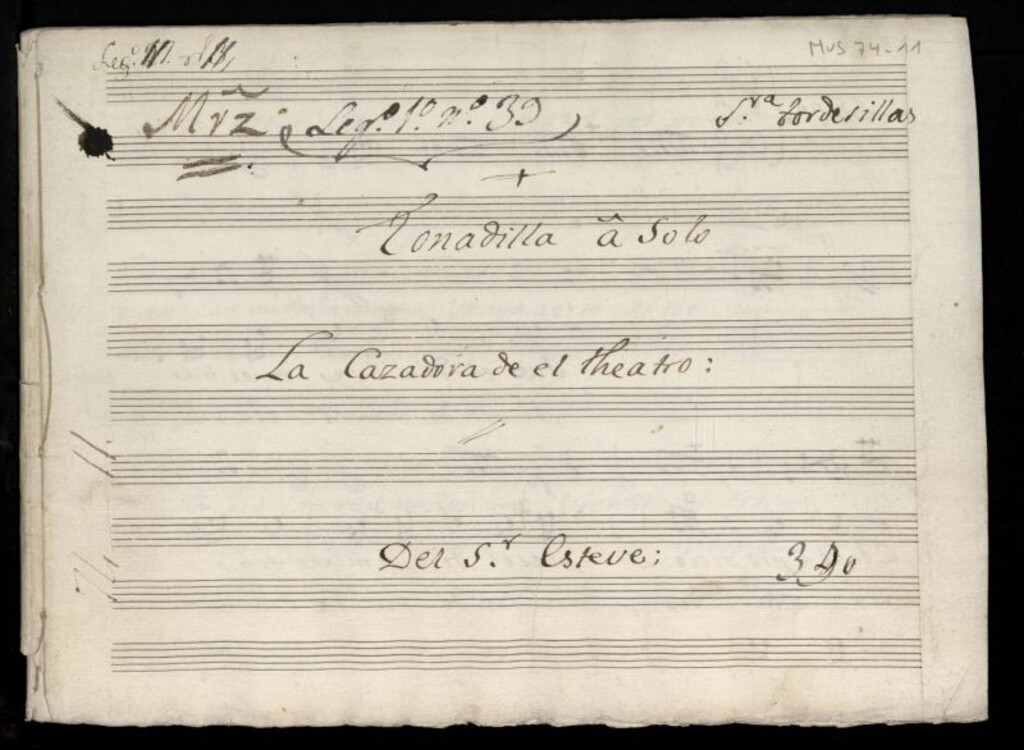 MUS 74-11
Mrz Leg.º 1.º n.º 39
S.ra Tordesillas
Tonadilla â Solo
La Cazadora de el theatro:
Del S.r Esteve;